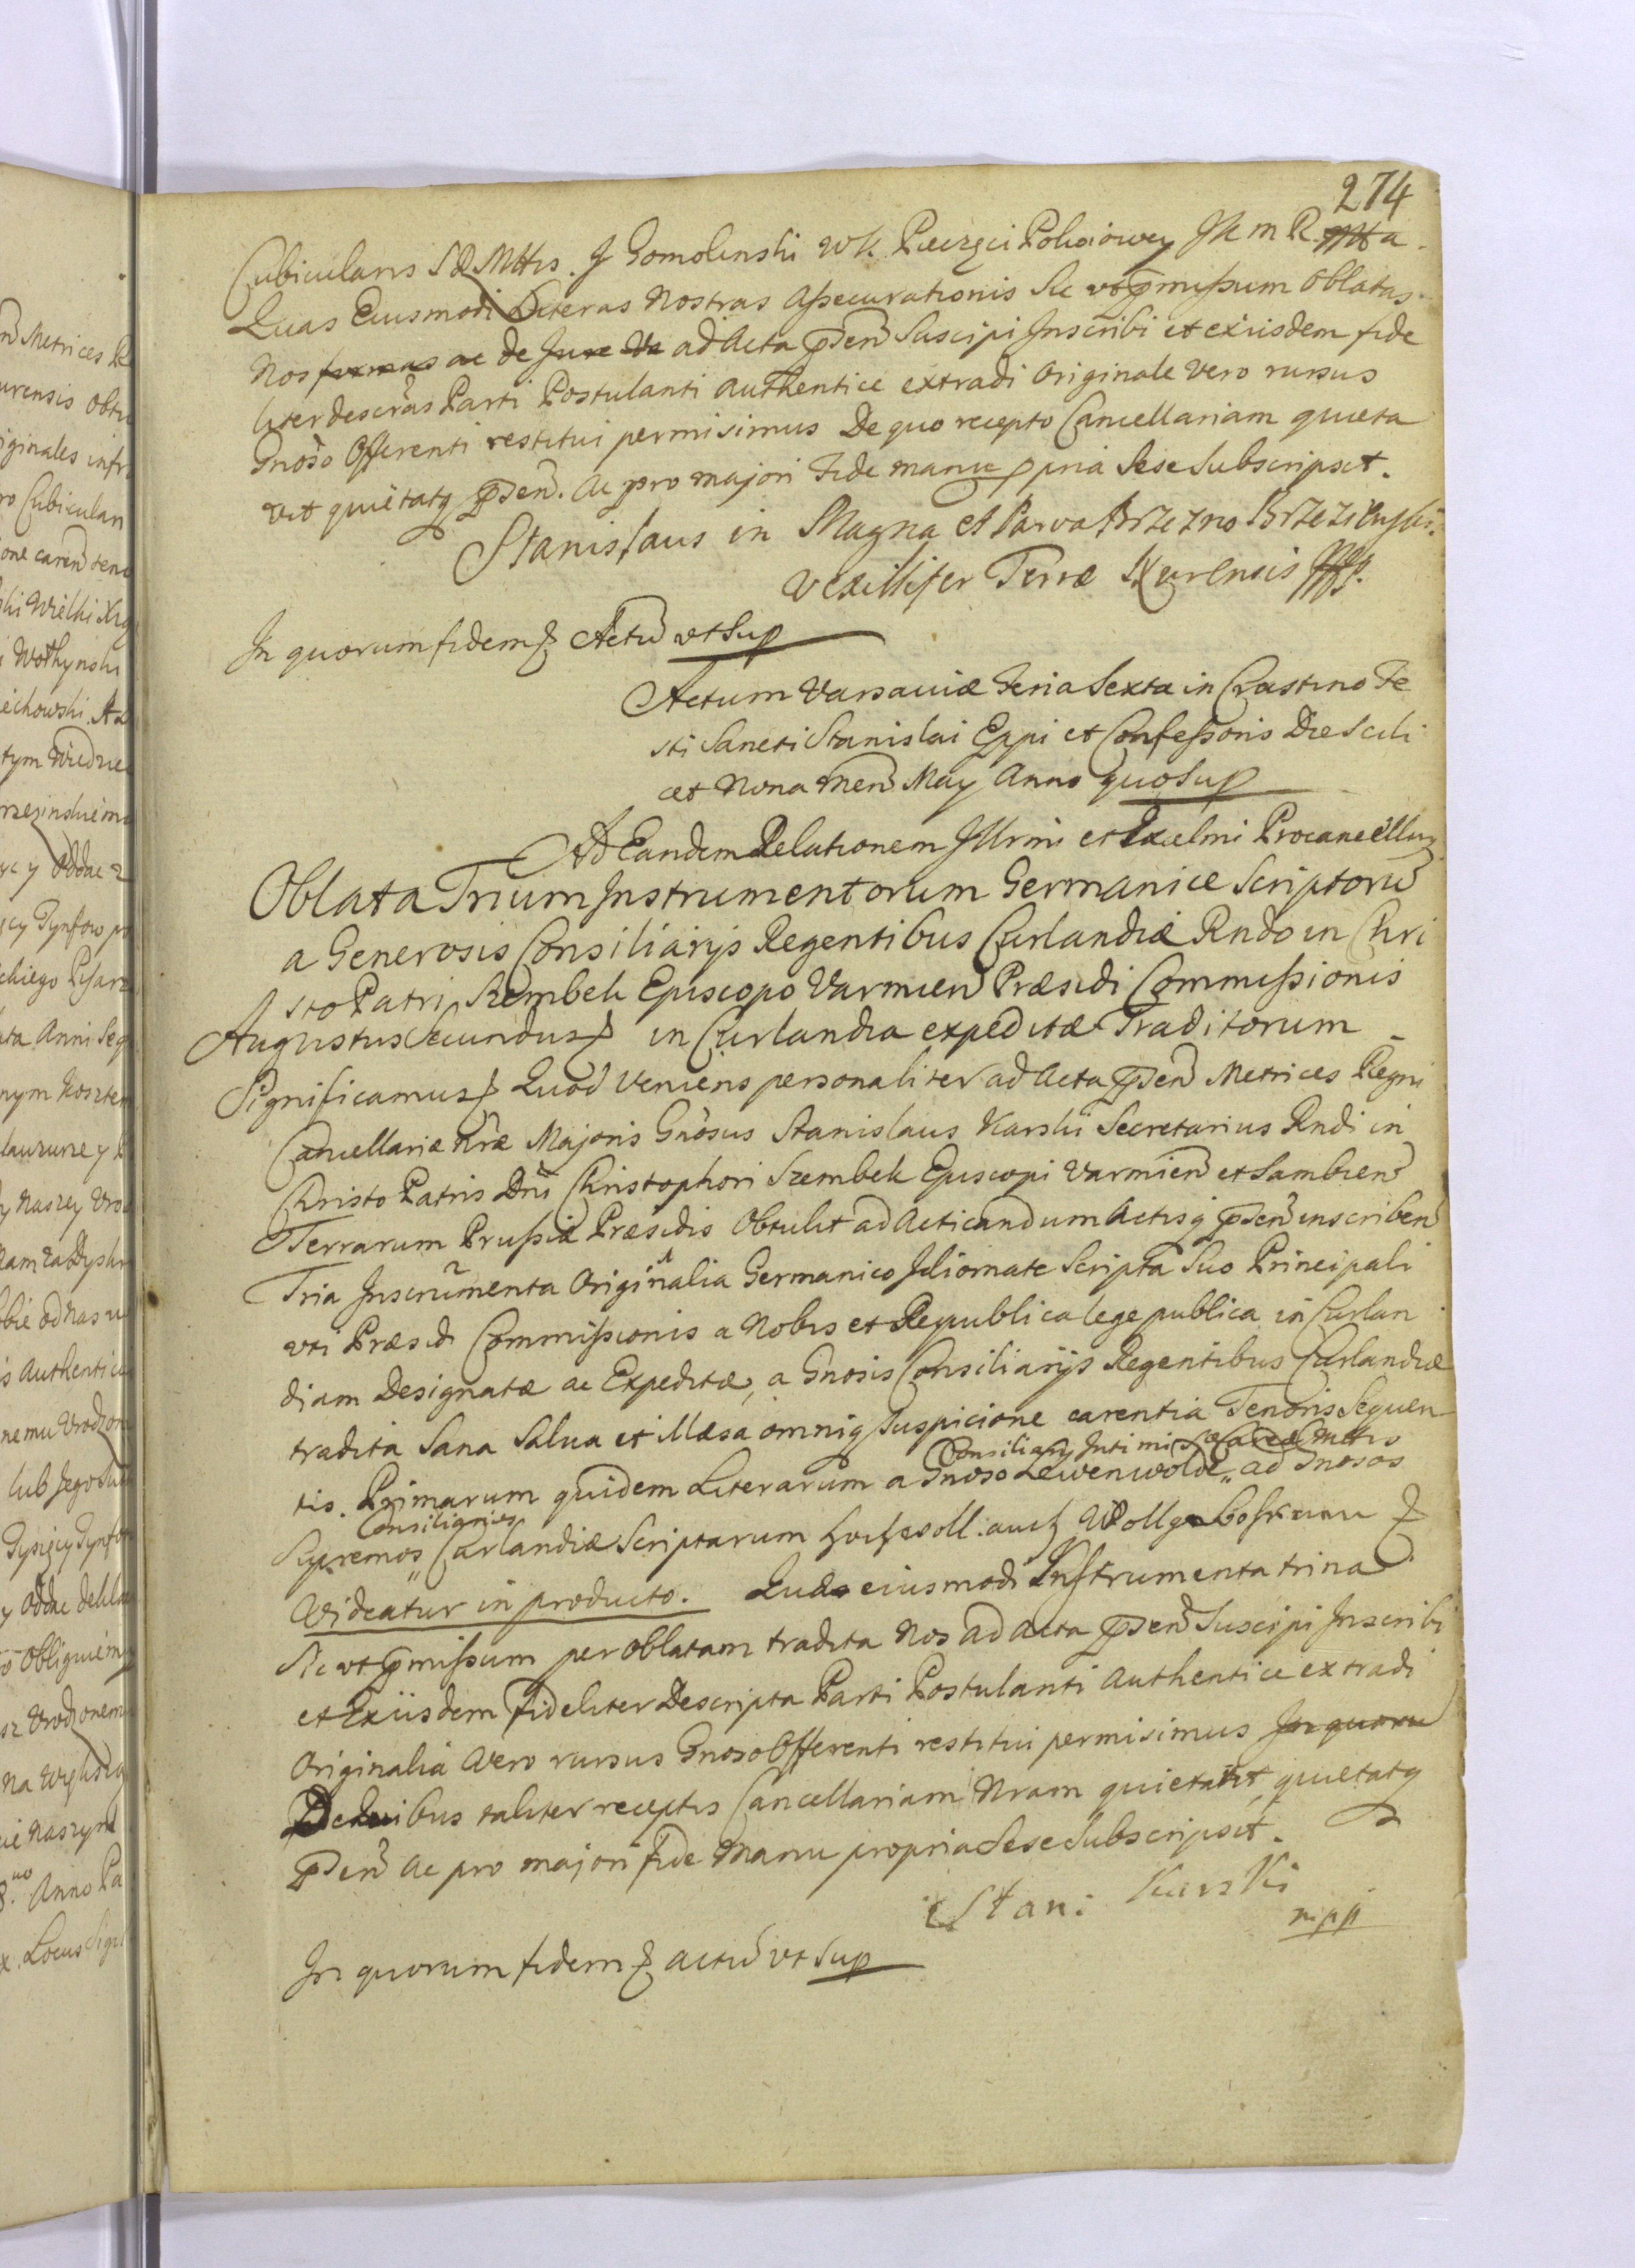 274
Cubicularis S R Mttis. J Gomolinski WK. Pieczęci Pokoiowey JK m R
Quas Eiusmodi Literas Nostras Assecurationis Sic vt p̄missum oblatas
Nos formas ac de Jure Va ad Acta p̄sen̄ Suscipi Inscribi et exiisdem fide
liter descr̄as Parti Postulanti Authentice extradi Originale vero rursus
Gnoso Offerenti restitui permisimus De quo recepto Cancellariam quieta
vit quietatq̢ p̄sen̄. Ac pro majori Fide manu ppria Sese Subscripsit.
Stanislaus in Magna et Parva Brzezno Brzezinski.
Vexillifer Terræ
In quorum fidem Actū vt Sup
Actum Varsauiæ Feria Sexta in Crastino Fe
sti Sancti Stanislai Eppi et Confessoris Die Scili
cet Nona Men̄ May Anno quo Sup
Ad Eandem Relationem Illrmi et Excelmi Procancellary
Oblata Trium Instrumentorum Germanice Scriptorū
a Generosis Consiliarijs Regentibus Curlandiæ Rndo in Chri
sto Patri Szembek Episcopo Varmien̄ Præsidi Commissionis
Augustus Secundus in Curlandia expeditæ Traditorum
Significamus Quod veniens personaliter ad Acta p̄sen̄ Metrices Regni
Cancellariæ Nr̄æ Majoris Gnosus Stanislaus Karski Secretarius Rndi in
Christo Patris Dni Christophori Szembek Episcopi Varmien̄ et Sambien̄
Terrarum Prussiæ Præsidis Obtulit ad Acticandum Actisq̢ p̄sen̄ inscriben̄
Tria Instrumenta Originalia Germanico Idiomate Scripta Suo Principali
vti Præsidi Commissionis a Nobis et Republica lege publica in Curlan
diam Designatæ ac Expeditæ, a Gnosis Consiliarijs Regentibus Curlandiæ
tradita Sana Salva et illæsa omniq̢ Suspicione carentia Tenoris Sequen
Consiliarij Intimi Mttis
tis. Primarum quidem Literarum a Gnoso Lewenwolde ad Gnosos
Consiliarios
Supremos Curlandiæ Scriptarum
Videatur in producto. Quæ eiusmodi Instrumenta trina
Sic vt p̄missum per oblatam tradita Nos ad Acta p̄sen̄ Suscipi Inscribi
et Exiisdem fideliter Descripta Parti Postulanti Authentice extradi
Originalia vero rursus Gnoso Offerenti restitui permisimus In quoru
De quibus taliter receptis Cancellariam Nram quietavit, quietatq̢
p̄sen̄ Ac pro majori fide Manu propria Sese Subscripsit.
Stan: Karski
mpp
In quorum fidem actū vt Sup